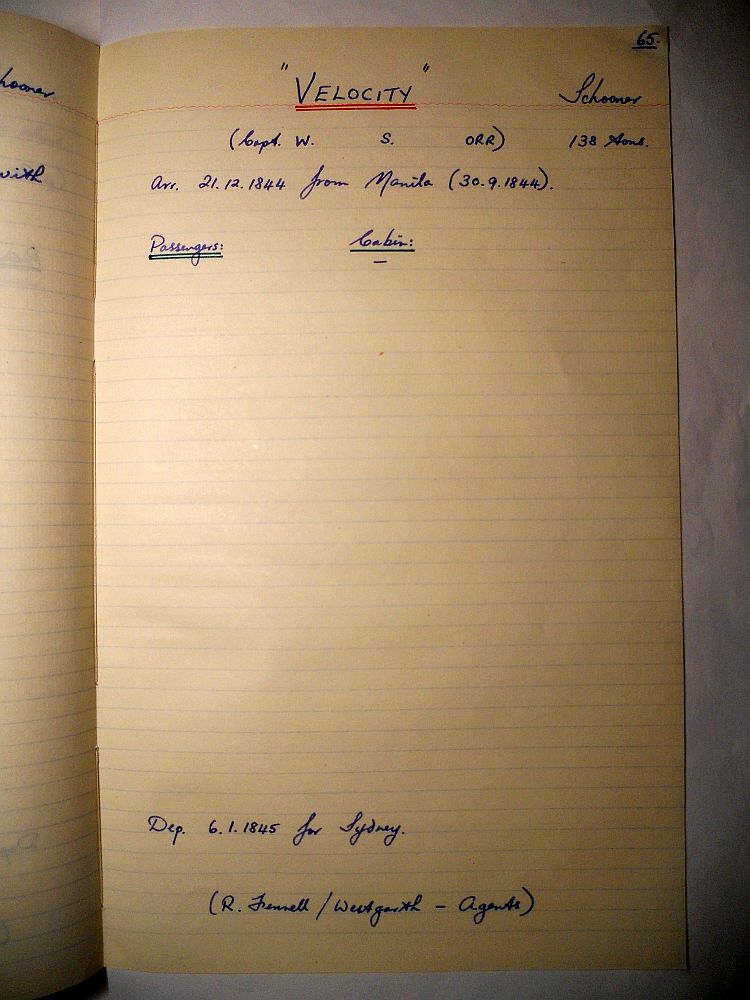 65.
"VELOCITY" Schooner
(Capt. W. S. ORR) 138 tons.
Arr. 21.12.1844 from Manila (30.9.1844).
Passengers: Cabin:
—
Dep. 6.1.1845 for Sydney.
(R. Fennell / Westgarth - Agents)
hooner
with